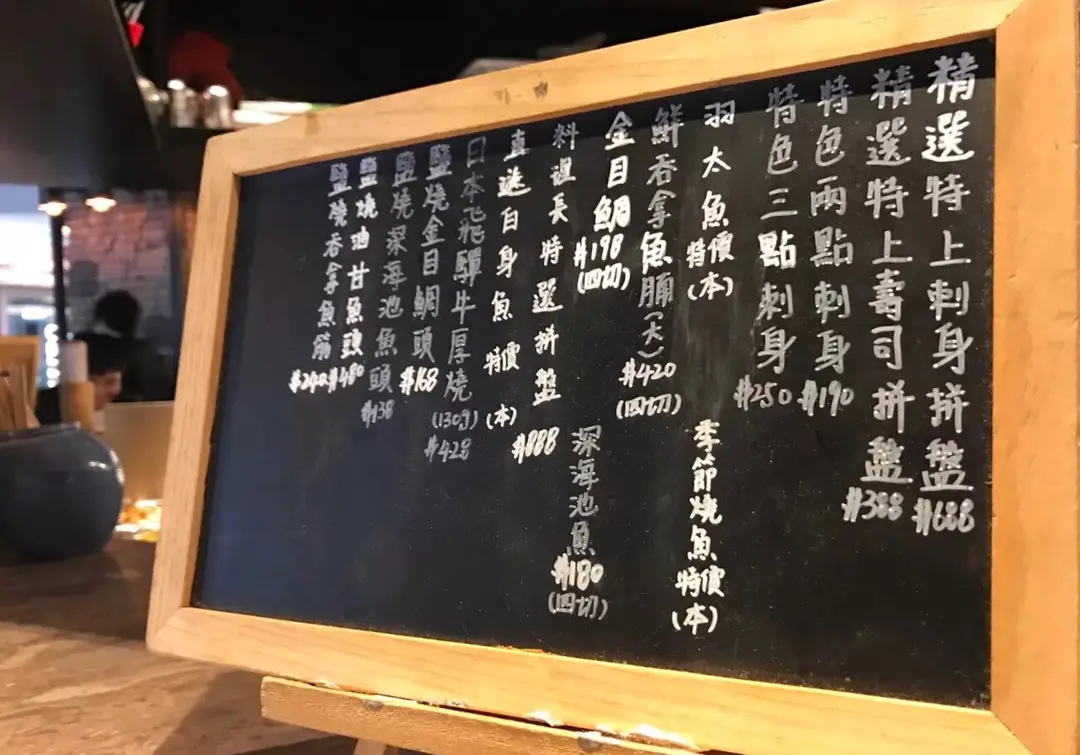 精選特上刺身拼盤 #688
精選特上壽司拼盤 #388
特色兩點刺身 #190
特色三點刺身 #250
羽太魚特價(本)
季節燒魚特價(本)
鮮吞拿魚腩(大) #420(四切)
金目鯛 #198(四切)
深海池魚 #180(四切)
料理長特選拼盤 #888
直送白身魚特價(本)
日本飛驒牛厚燒(130g) #428
鹽燒金目鯛頭 #168
鹽燒深海池魚頭 #138
鹽燒油甘魚頭 #480
鹽燒吞拿魚筋 #240